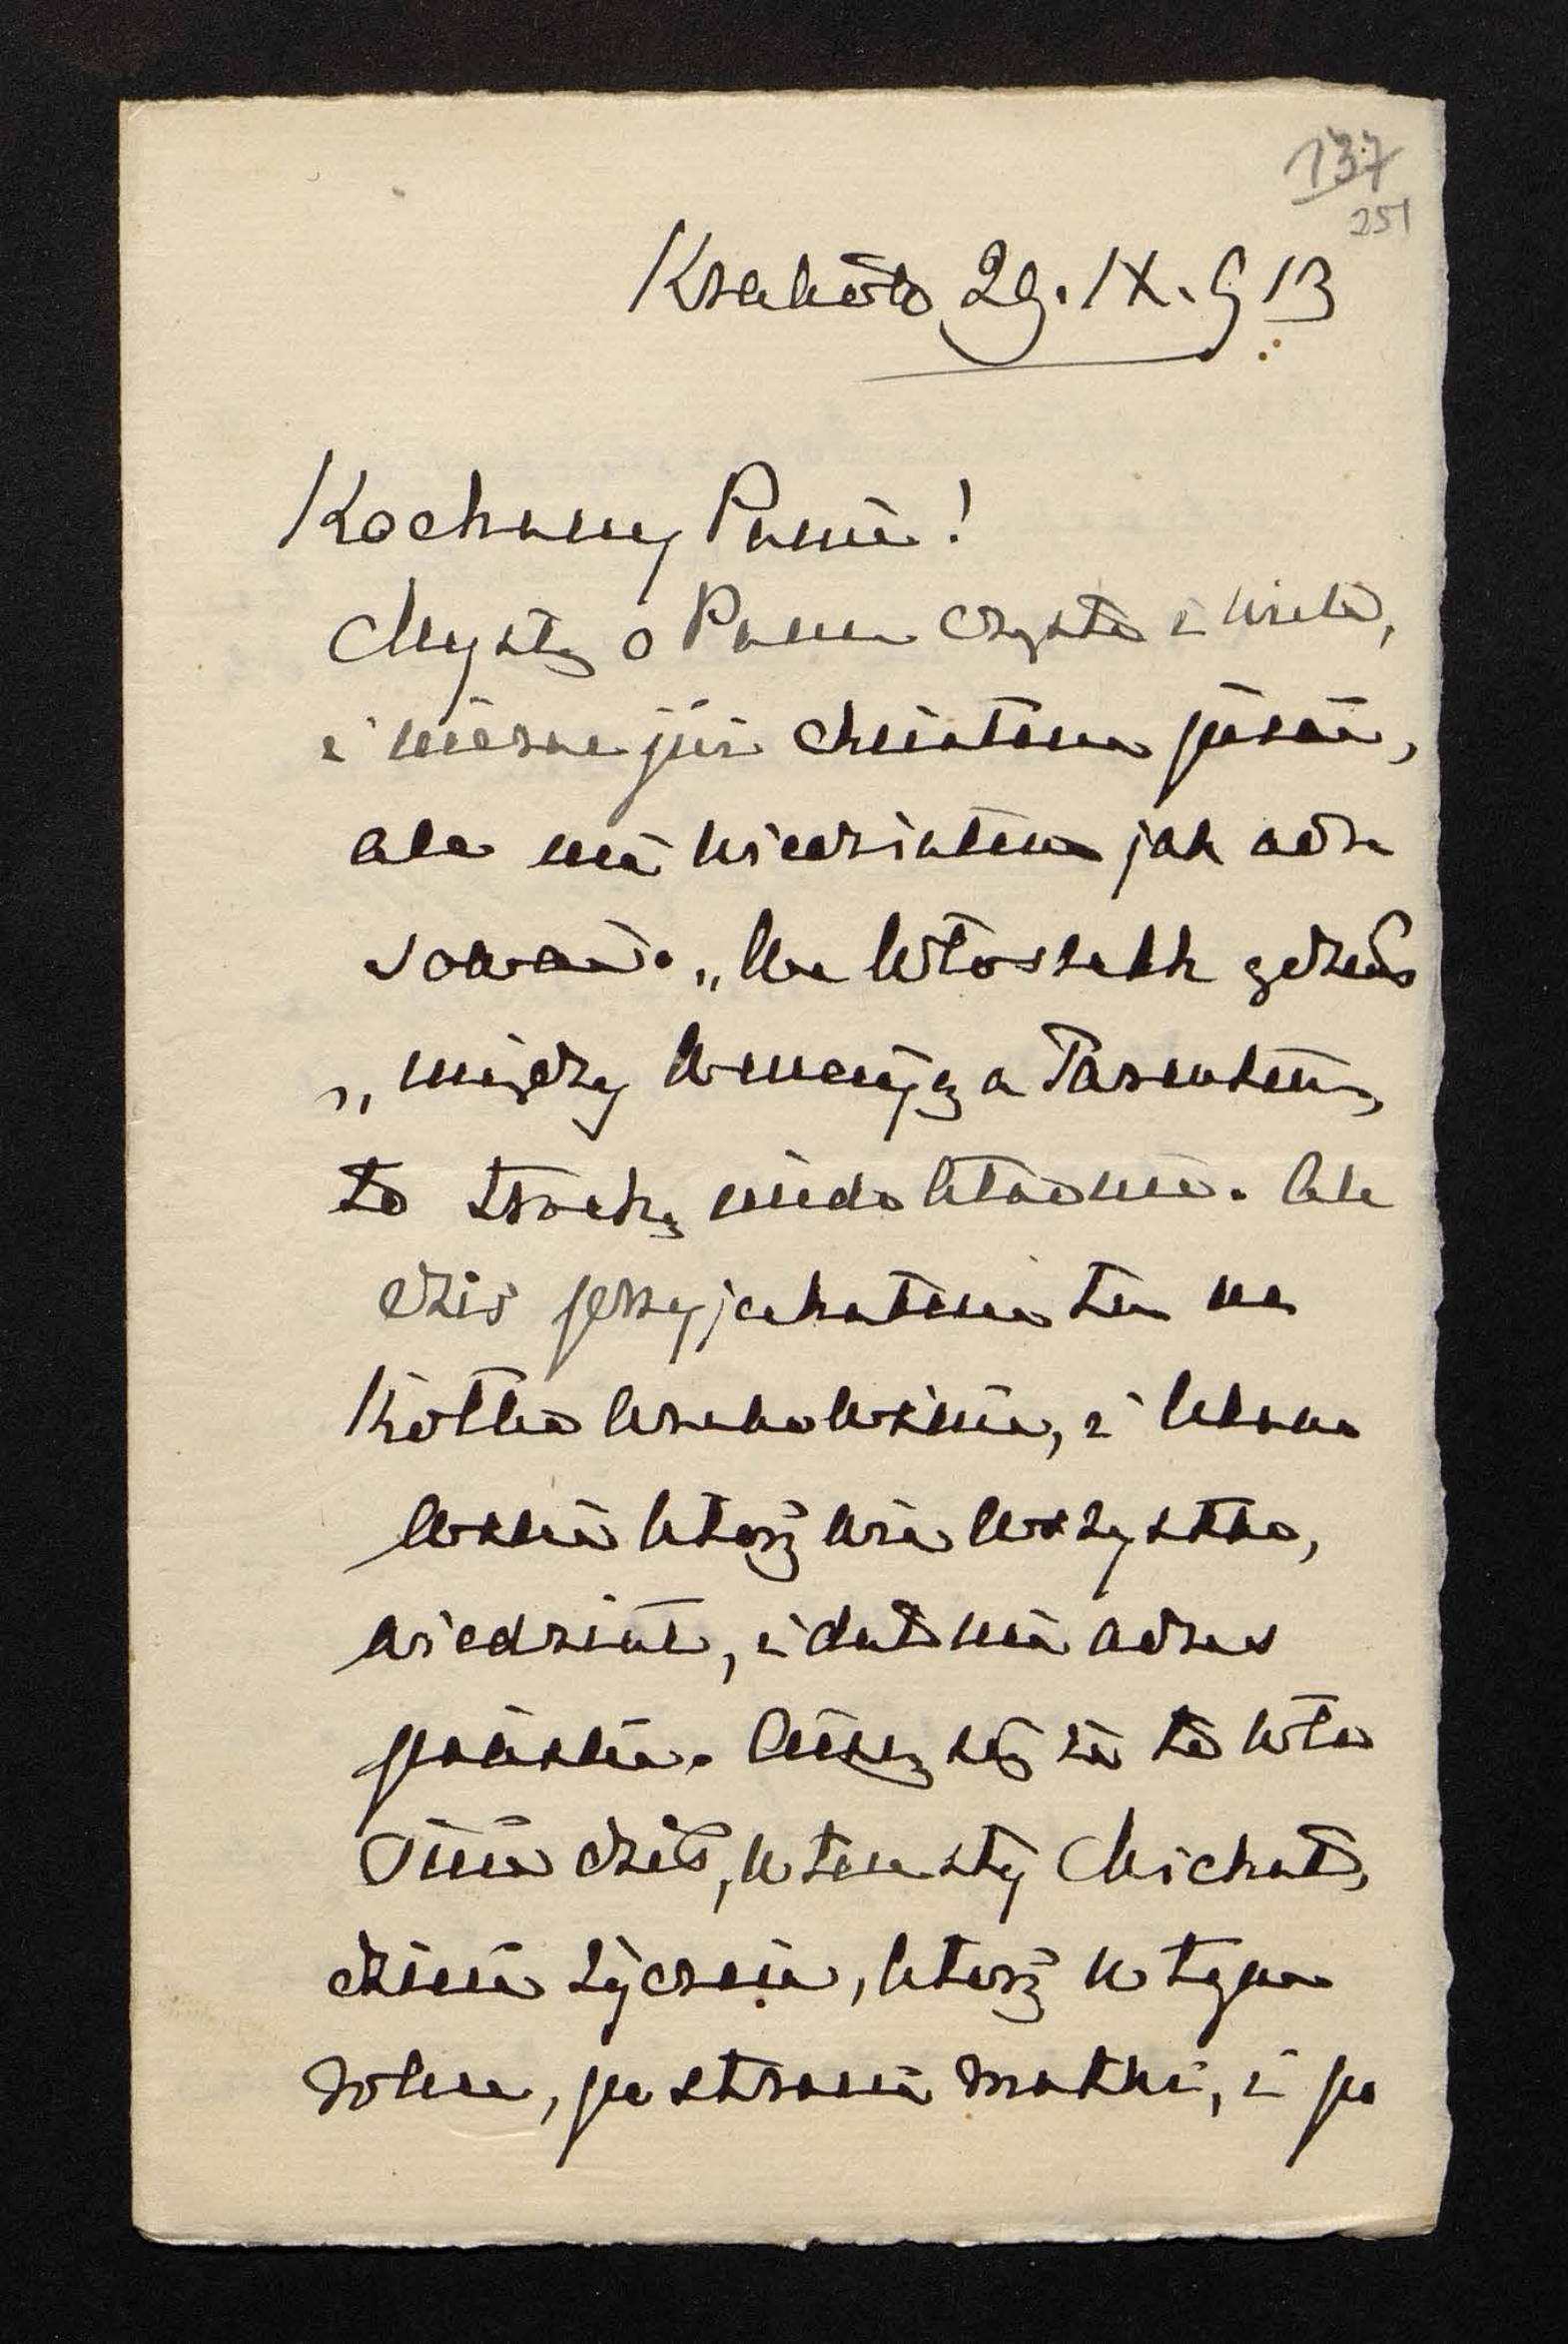 137
251
Kraków 29. IX. 913
Kochany Panie!
Myślę o Panu często i wiele,
i nieraz już chciałem pisać,
ale nie wiedziałem jak adre
sować. „We Włoszech gdzieś
„między Wenecyą a Tarentem,
to trochę niedokładnie. Ale
dziś przyjechałem tu na
Kółko
które wie wszystko,
wiedział, i dał mi adres
pański. Cieszę się że to wła
śnie dziś, w ten sty Michał,
dzień życzeń, które w tym
roku, po stracie matki, i po